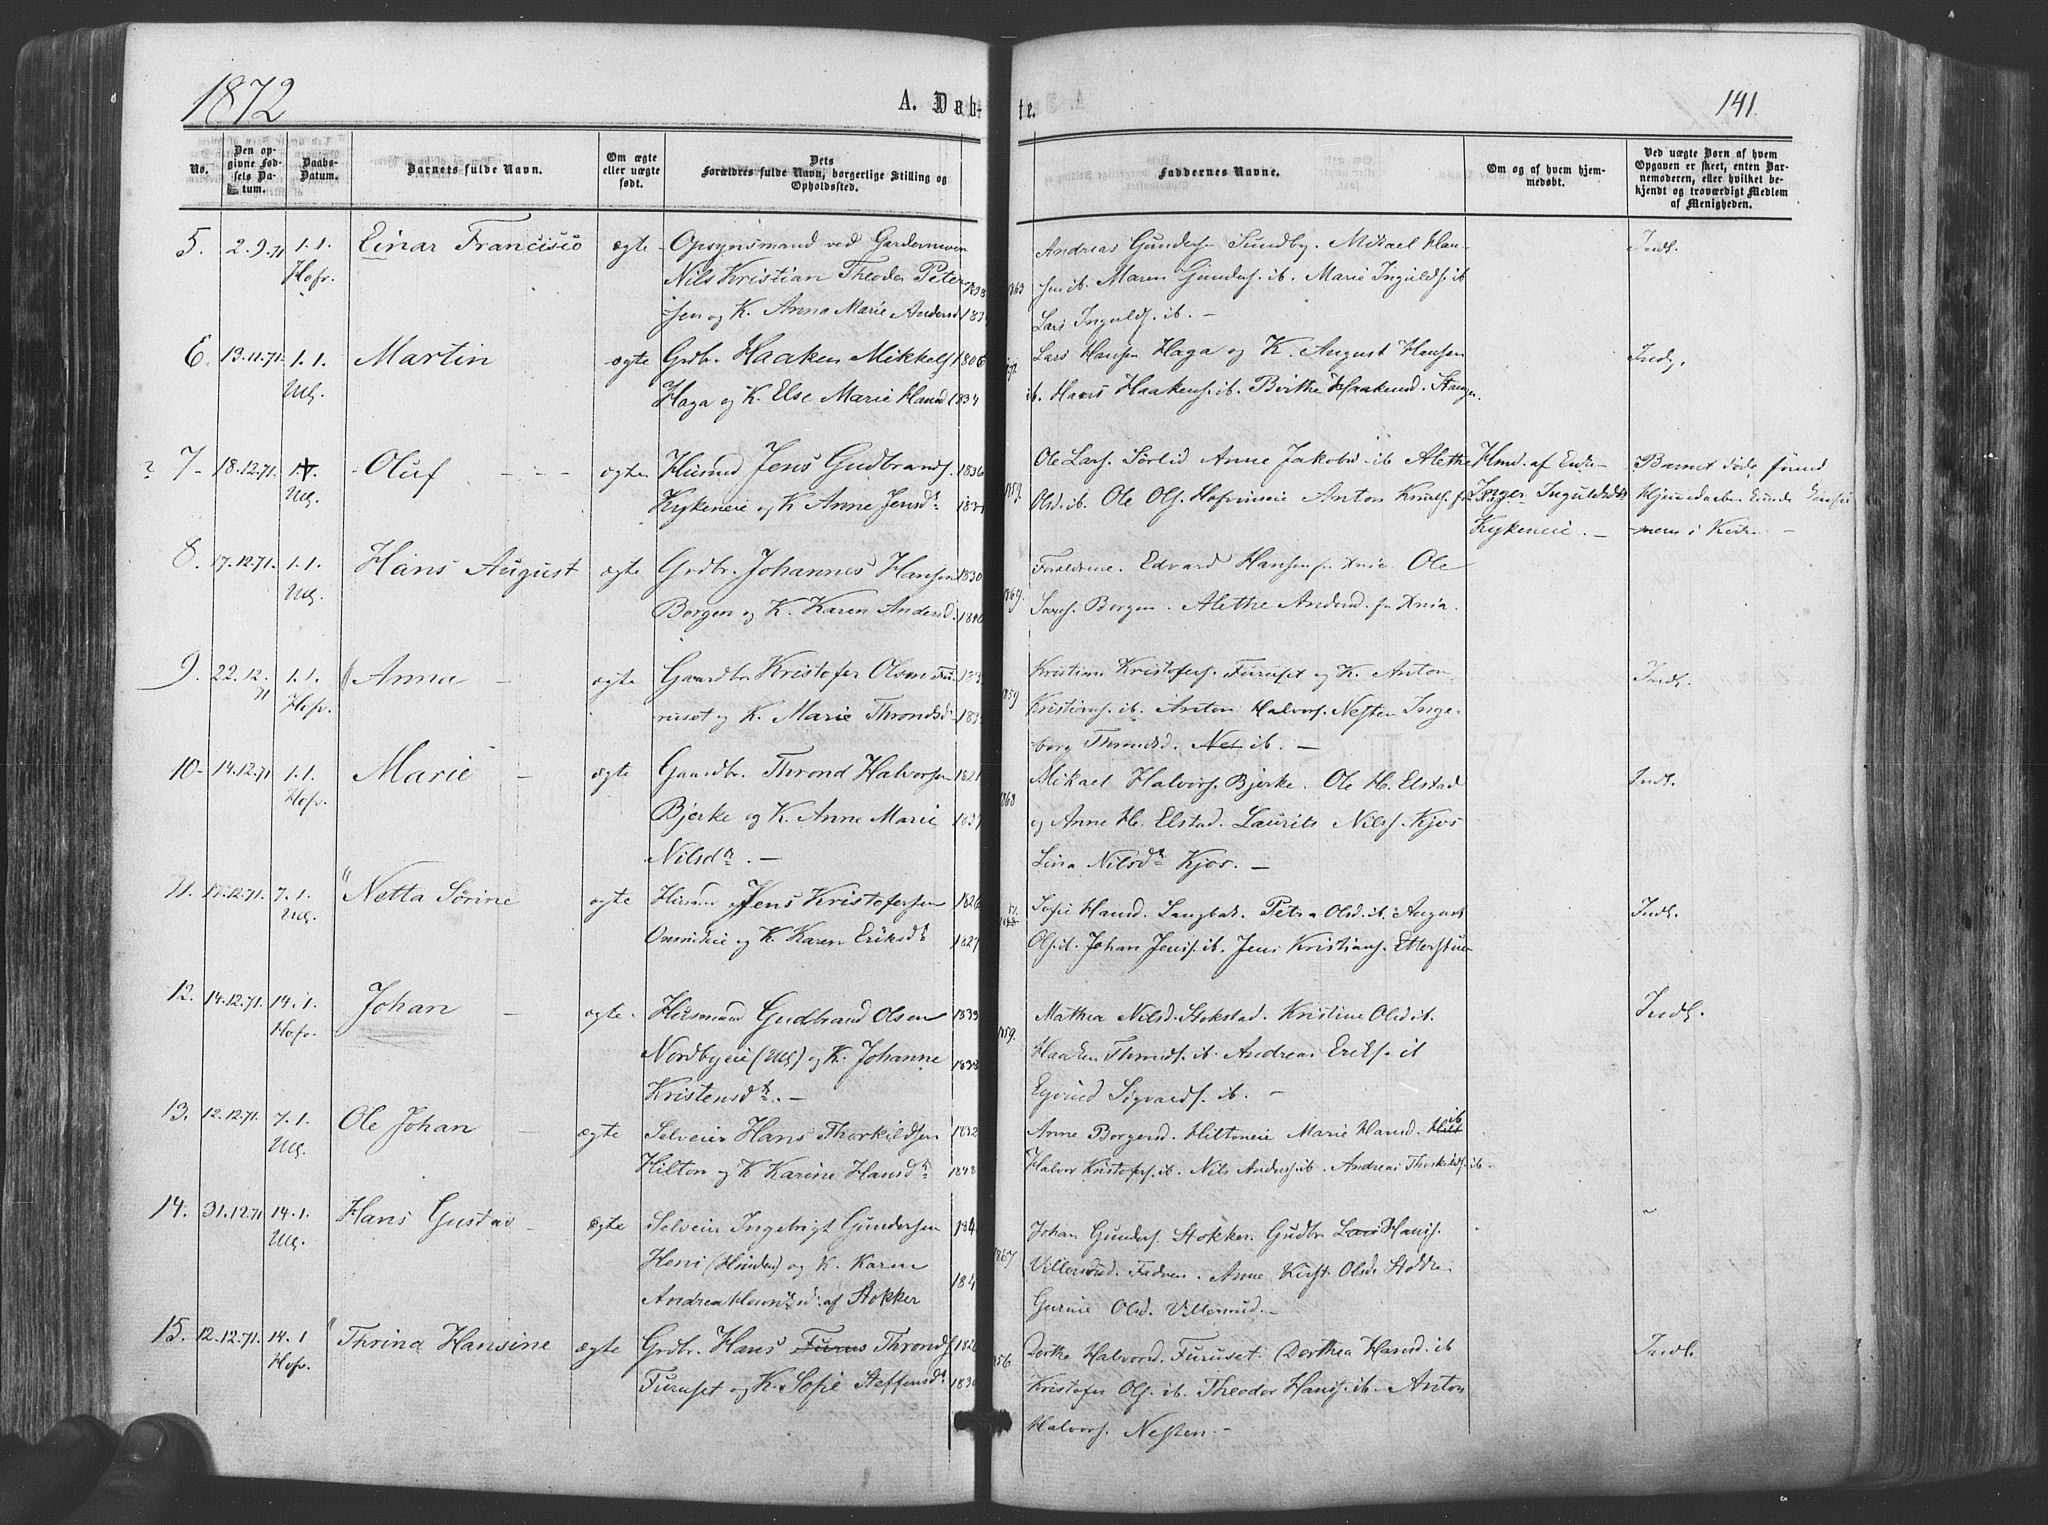 1872
A. Dab-
te.
141.
No.
Den op-
givne Fød-
sels Da-
tum.
Daabs-
Datum.
Barnets fulde Navn.
Om ægte
eller uægte
født.
Dets
Forældres fulde Navn, borgerlige Stilling og
Opholdssted.
Faddernes Navne.
Om og af hvem hjem-
medøbt.
Ved uægte Børn af hvem
Opgaven er skeet, enten Bar-
nemoderen, eller hvilket be-
kjendt og troværdigt Medlem
af Menigheden.
5. 2.9.71 1.1. Einar Francisco ægte Opsynsmand ved
Hofv. Nils Kristian Theodor Peter-
sen og K. Anna Marie Andersd.
Andreas Gunders. Sundby. Mikael Han-
sen ib. Maren Gunders. ib. Marie Ingulds. ib
Lars Ingulds. ib. –
Indl.
6. 13.11.71. 1.1. Martin ægte Grdbr. Haaken Mikkels. 1806
Ull. Haga og K. Else Marie Hansd. 1834
Lars Hansen Haga og K. August Hansen
ib. Hans Haakens. ib. Birthe Haakensd.
Indl.
? 7 – 18.12.71. 1.1. Oluf ægte Husmd Jens Gudbrands. 1836
Ull. Kykeneie og K. Anne Jensdr.
Ole Lars. Sørlid Anne Jakobsd. ib Alethe
Olsd. ib. Ole Ols. Hofvineie Anton
Hmd. af Enke
Inger Inguldsdr
Kykeneie. –
Barnet døde førend
8. 17.12.71. 1.1. Hans August ægte Grdbr. Johannes Hansen 1830
Ull. Borgen og K. Karen Andersd. 1840
1869.
Forældrene. Edvard Hansen fr Xnia Ole
Borgen. Alethe Andersd. fr Xnia.
9. 22.12.71 1.1. Anna ægte Gaardbr Kristofer Olsen Fu-
Hofv. ruset og K. Marie Throndsd.
1859
Kristian Kristofers. Furuset og K. Anton
Kristians. ib. Anton Halvors. Nesten Inge-
borg Thronds. ib. –
Indl.
10 – 14.12.71 1.1. Marie ægte Gaardbr. Thrond Halvorsen 1821
Hofv. Bjerke og K. Anne Marie
Nilsdr. –
1868
Mikael Halvors. Bjerke. Ole H. Elstad
og Anne H. Elstad. Laurits Nils. Kjos
Lina Nilsdr. Kjos. –
Indl.
11. 7.1. Netta Sørine ægte Husmd Jens Kristofersen 1826
Ull. og K. Karen Eriksdr. 1827
Sofie Hansd. Langbak. Petra Olsd. ib. August
Ols. ib. Johan Jens. ib. Jens Kristians.
Indl.
12. 14.12.71. 14.1. Johan ægte Husmand Gudbrand Olsen 1839
Hofv. Nordbyeie (Ull) og K. Johanne 1838
Kristensdr. –
1859.
Mathea Nilsd. Stokstad. Kristine Olsd. ib.
Haaken Thronds. ib. Andreas Eriks. ib
Eyvind Sigvards. ib. –
Indl.
13. 12.12.71. 7.1. Ole Johan ægte Selveier Hans Thorkildsen 1832
Ull. Hilton og K. Karine Hansdr. 1848
Anne Borgersd. Hiltoneie Marie Hansd. ib
Halvor Kristofers. ib. Nils Anders. ib. Andreas Thorkilds. ib.
14. 31.12.71 14.1. Hans Gustav ægte Selveier Ingebrigt Gundersen
Ull. Heni og K. Karen
Andrea af Stokker
1867
Johan Gunders. Stokker. Gudbr. Hans.
Villersrud. Fadren. Anne Kirst. Olsd. Stokker
Gurine Olsd. Villersrud. –
15. 12.12.71. 14.1 Thrina Hansine ægte Grdbr. Hans Thronds.
Hofv. Furuset og K. Sofie Steffensdr
Dorthe Halvord. Furuset. Dorthea Hansd. ib
Kristofer Ols. ib. Theodor Hans. ib. Anton
Halvors. Nesten –
Indl.